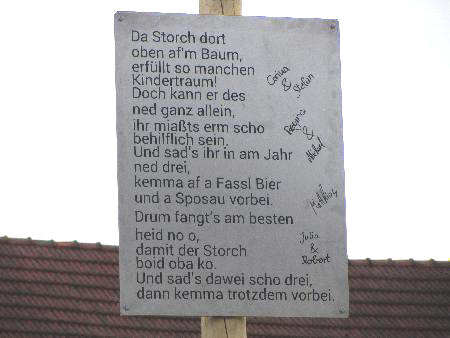 Da Storch dort
oben af'm Baum,
erfüllt so manchen
Kindertraum!
Doch kann er des
ned ganz allein,
ihr miaßts erm scho
behilflich sein.
Und sad's ihr in am Jahr
ned drei,
kemma af a Fassl Bier
und a Sposau vorbei.
Drum fangt's am besten
heid no o,
damit der Storch
boid oba ko.
Und sad's dawei scho drei,
dann kemma trotzdem vorbei.
Corina
&
Stefan
Regina
&
Michael
Julia
&
Robert